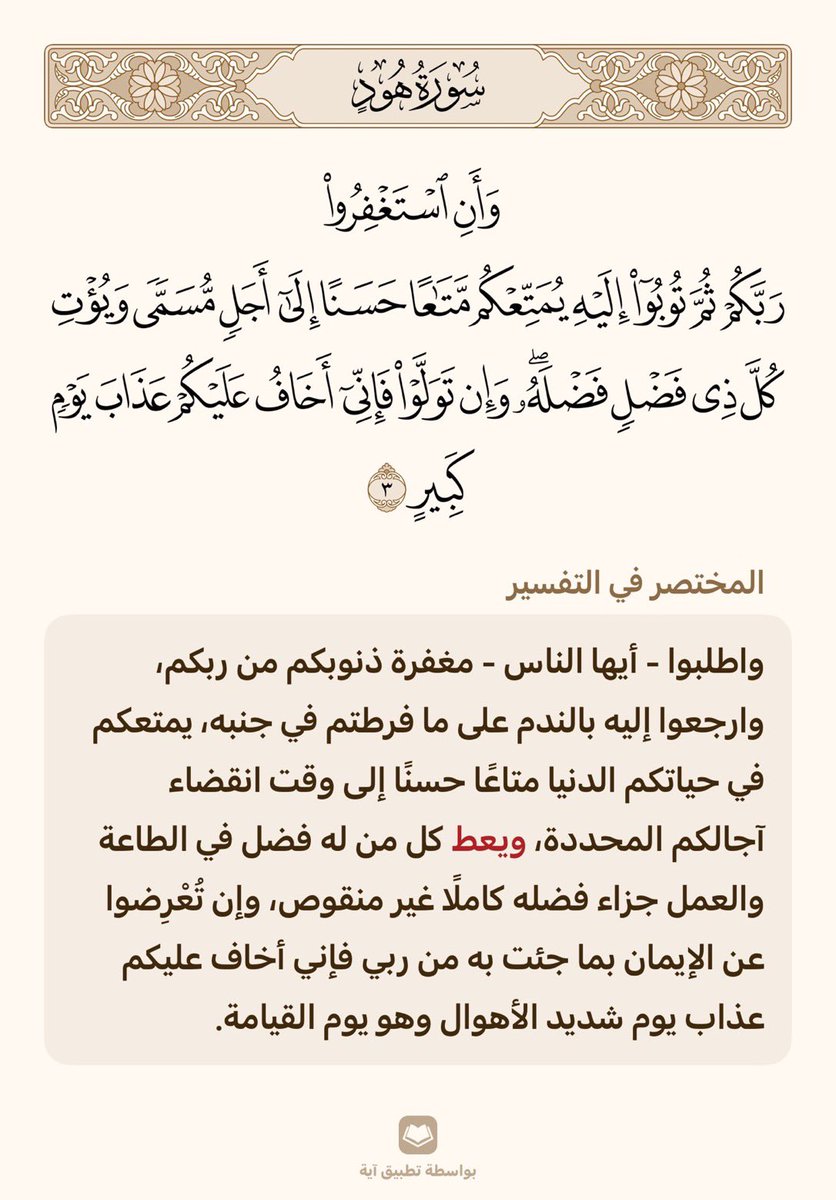 سُورَةُ هُودٍ
وَأَنِ ٱسۡتَغۡفِرُواْ
رَبَّكُمۡ ثُمَّ تُوبُوٓاْ إِلَيۡهِ يُمَتِّعۡكُم مَّتَٰعًا حَسَنًا إِلَىٰٓ أَجَلٖ مُّسَمّٗى وَيُؤۡتِ
كُلَّ ذِي فَضۡلٖ فَضۡلَهُۥۖ وَإِن تَوَلَّوۡاْ فَإِنِّيٓ أَخَافُ عَلَيۡكُمۡ عَذَابَ يَوۡمٖ
كَبِيرٍ ٣
المختصر في التفسير
واطلبوا - أيها الناس - مغفرة ذنوبكم من ربكم،
وارجعوا إليه بالندم على ما فرطتم في جنبه، يمتعكم
في حياتكم الدنيا متاعًا حسنًا إلى وقت انقضاء
آجالكم المحددة، ويعط كل من له فضل في الطاعة
والعمل جزاء فضله كاملًا غير منقوص، وإن تُعْرِضوا
عن الإيمان بما جئت به من ربي فإني أخاف عليكم
عذاب يوم شديد الأهوال وهو يوم القيامة.
بواسطة تطبيق آية